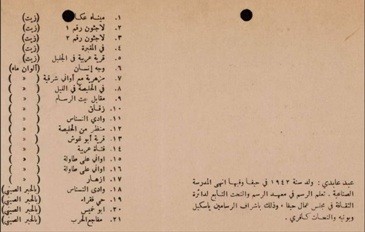 ١. ميناء عكا (زيت)
٢. لاجئون رقم ١ (زيت)
٣. لاجئون رقم ٢ (زيت)
٤. في المقبرة (زيت)
٥. قرية عربية في الجليل (زيت)
٦. وجه إنسان (ألوان ماء)
٧. مزهرية مع أواني شرقية ( » )
٨. في الحليصة في الليل ( » )
٩. مقابل بيت الرسام ( » )
١٠. زقاق ( » )
١١. وادي النسناس ( » )
١٢. منظر من الحليصة ( » )
١٣. قرية أبو غوش ( » )
١٤. فتاة عربية ( » )
١٥. أواني على طاولة ( » )
١٦. أواني على طاولة ( » )
١٧. أزهار ( » )
١٨. وادي النسناس (بالحبر الصيني)
١٩. حي فقراء (بالحبر الصيني)
٢٠. أبو عيسى (بالحبر الصيني)
٢١. مفاجع الحرب (بالحبر الصيني)
عبد عابدي : ولد سنة ١٩٤٢ في حيفا وفيها انهى المدرسة
الصناعية . تعلم الرسم في معهد الرسم والنحت التابع لدائرة
الثقافة في مجلس عمال حيفا ، وذلك باشراف الرسامين
وبونيه والنحات كافري .